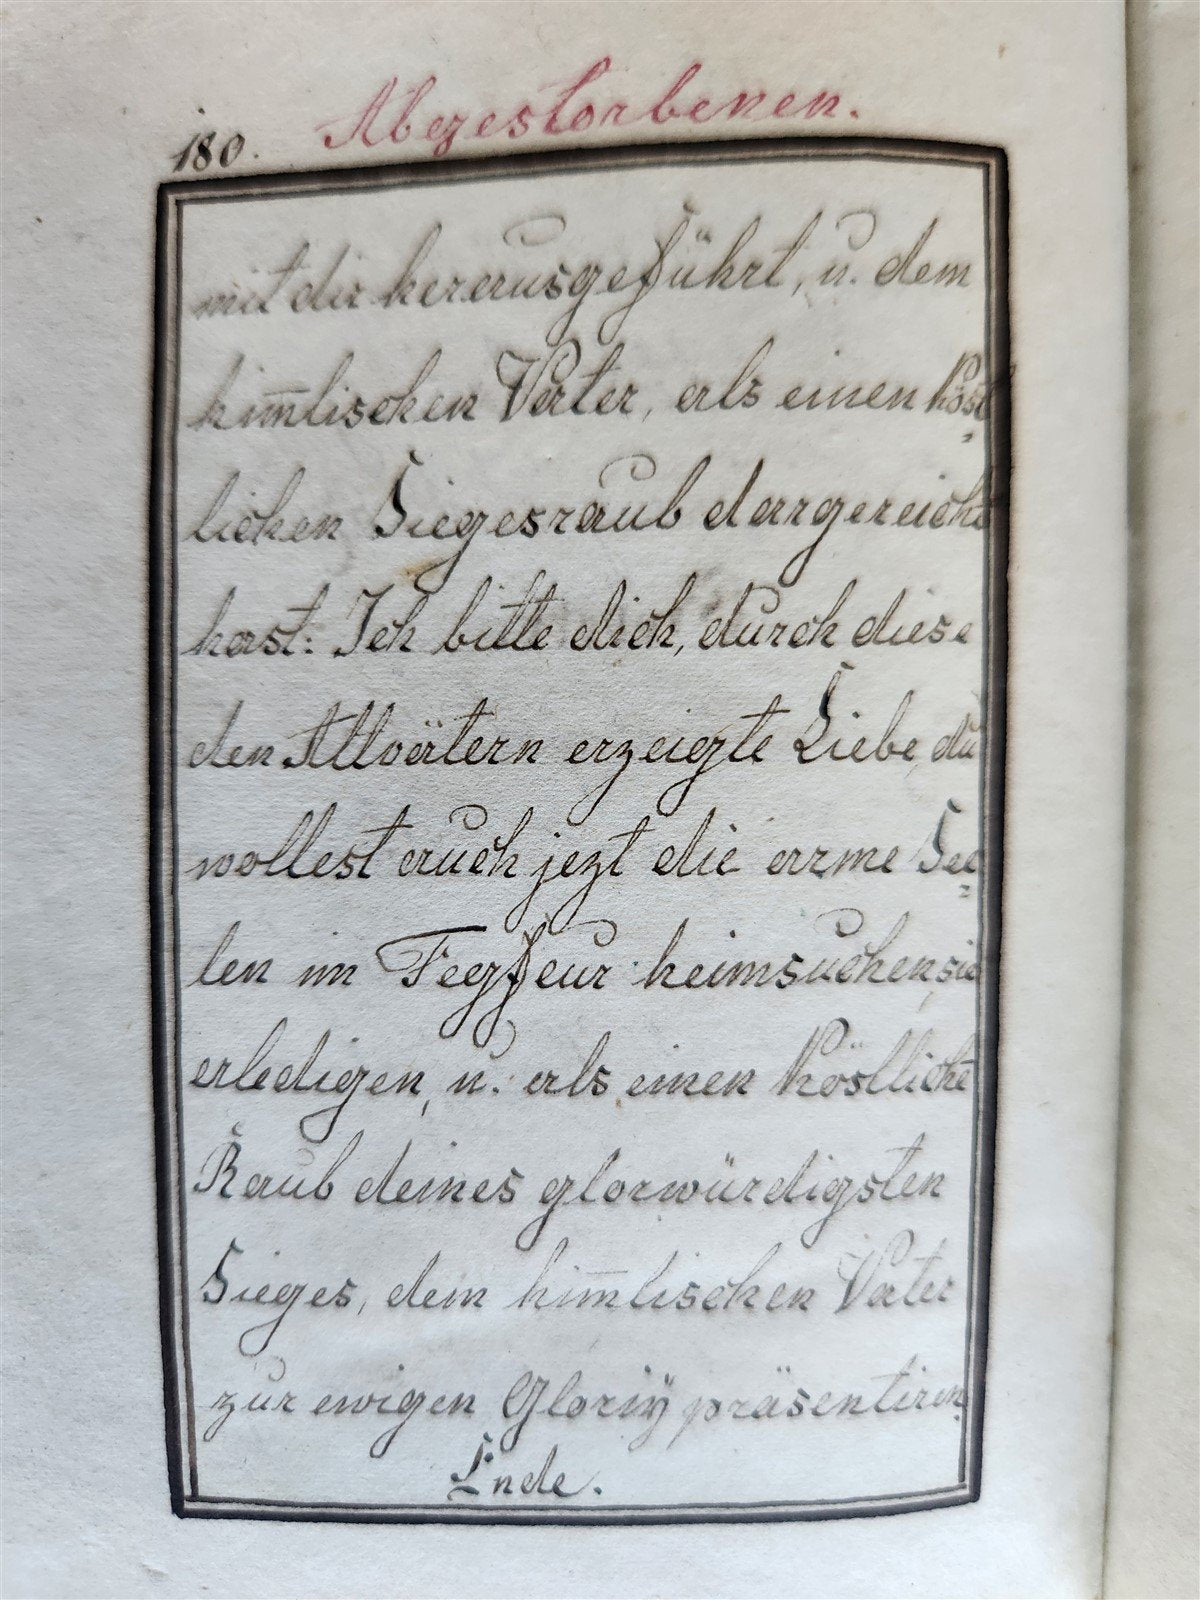 180. Abgestorbenen.
mit dir herausgeführt, u. dem
him̅lischen Vater, als einen köst=
lichen Siegesraub dargereicht
hast: Ich bitte dich, durch diese
den Altvätern erzeigte Liebe, du
wollest auch jezt die arme See=
len im Fegfeur heimsuchen, sie
erledigen, u. als einen köstliche
Raub deines glorwürdigsten
Sieges, dem him̅lischen Vater
zur ewigen Gloriÿ präsentiren.
Ende.